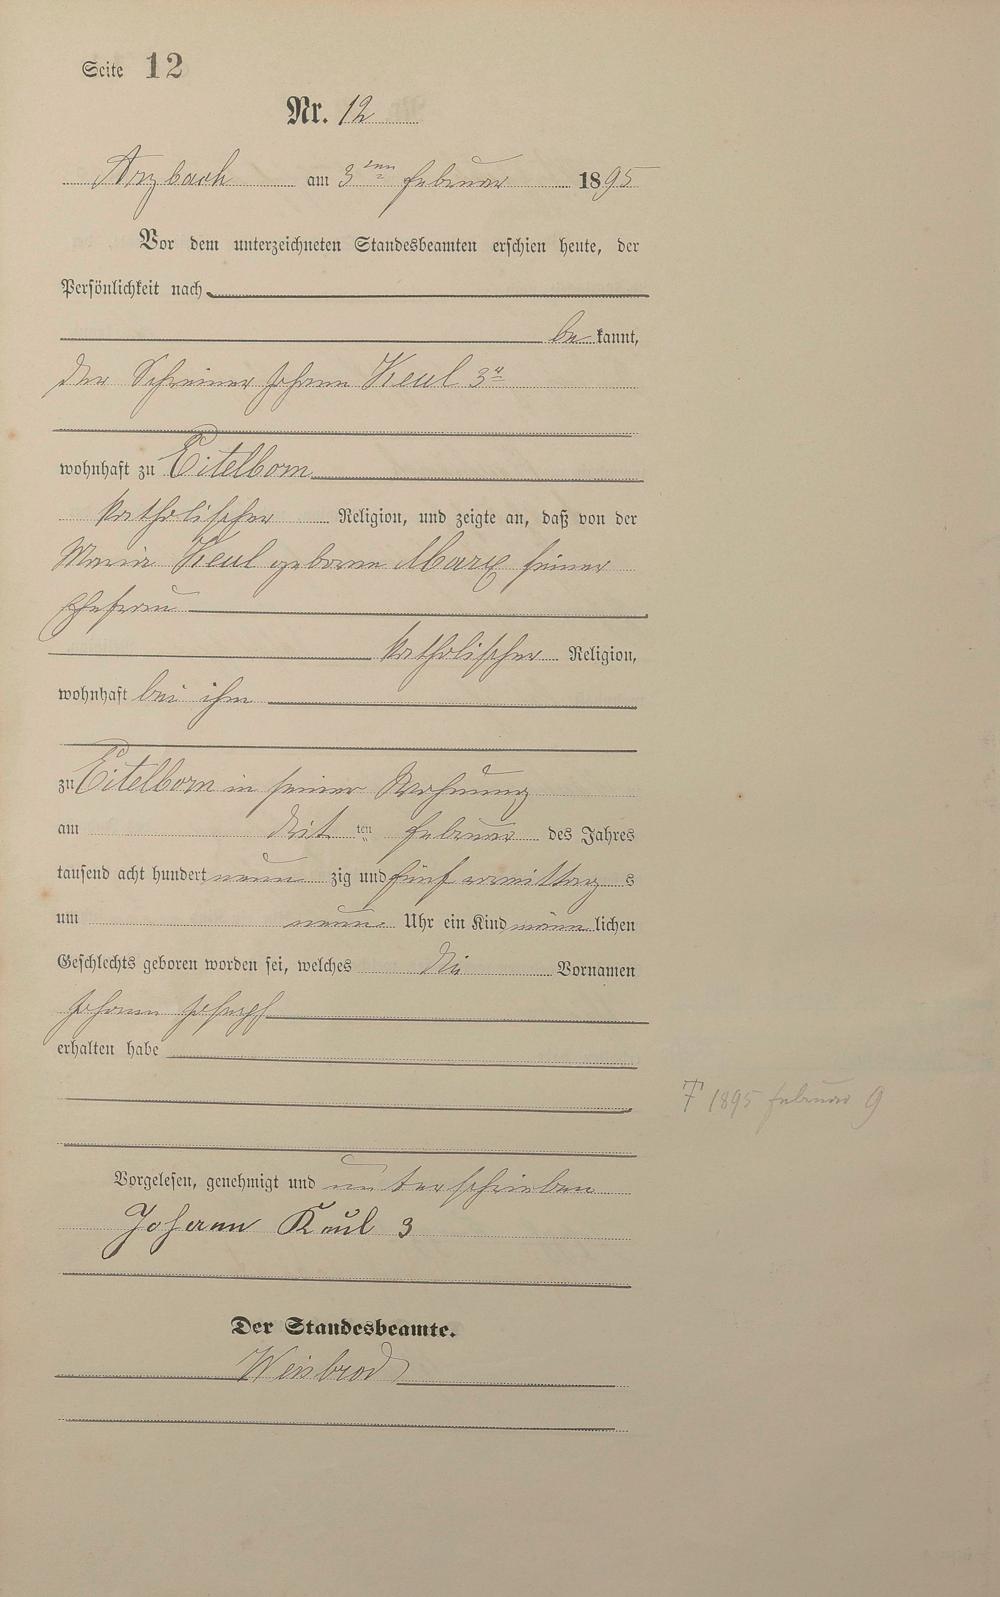 Seite 12
Nr. 12
Arzbach am 3ten Februar 1895
Vor dem unterzeichneten Standesbeamten erschien heute, der
Persönlichkeit nach
be kannt,
der Schreiner Johann Keul 3r
wohnhaft zu Eitelborn
katholischer Religion, und zeigte an, daß von der
Maria Keul geborene Marx seiner
Ehefrau
katholischer Religion,
wohnhaft bei ihm
zu Eitelborn in seiner Wohnung
am ten Februar des Jahres
tausend acht hundert neun zig und fünf vormittag s
um neun Uhr ein Kind männ lichen
Geschlechts geboren worden sei, welches die Vornamen
Johann Joseph
erhalten habe
† 1895 Februar 9
Vorgelesen, genehmigt und unterschrieben
Johann Keul 3
Der Standesbeamte.
Weisbrod